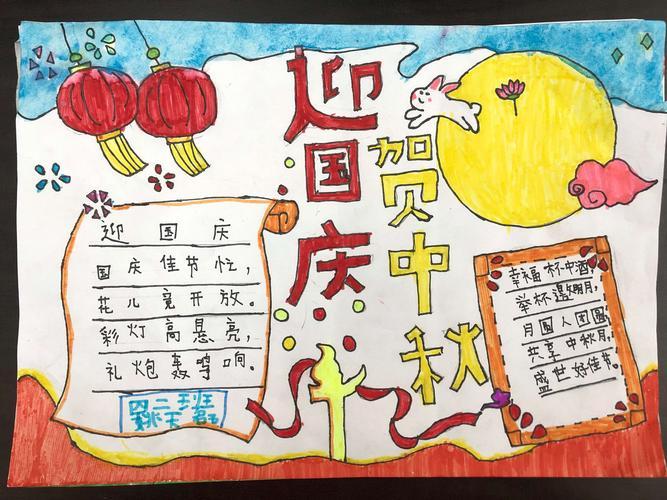 迎国庆
贺中秋
迎国庆
国庆佳节忙，
花儿竞开放。
彩灯高悬亮，
礼炮轰鸣响。
四二班
幸福杯中酒，
举杯邀明月，
月圆人团圆，
共享中秋月，
盛世好佳节。